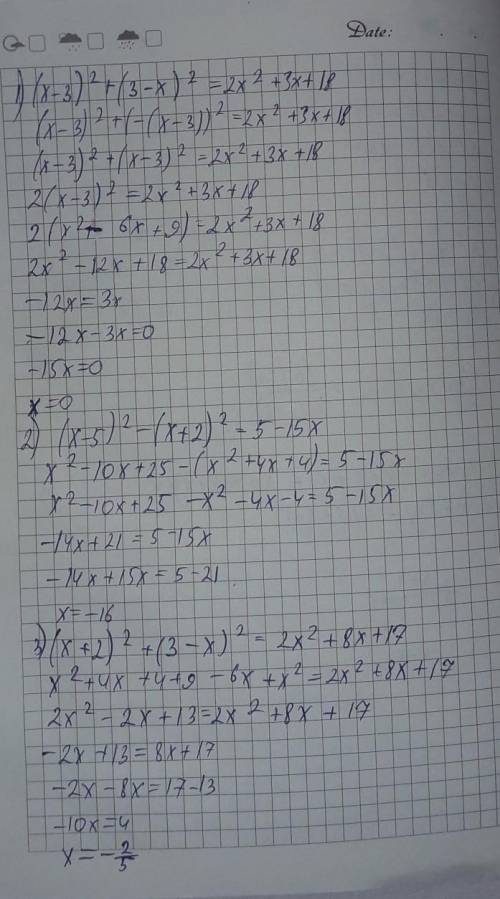 Date:
1) (x-3)² + (3-x)² = 2x² + 3x + 18
(x-3)² + (-(x-3))² = 2x² + 3x + 18
(x-3)² + (x-3)² = 2x² + 3x + 18
2(x-3)² = 2x² + 3x + 18
2(x² - 6x + 9) = 2x² + 3x + 18
2x² - 12x + 18 = 2x² + 3x + 18
-12x = 3x
-12x - 3x = 0
-15x = 0
x = 0
2) (x-5)² - (x+2)² = 5 - 15x
x² - 10x + 25 - (x² + 4x + 4) = 5 - 15x
x² - 10x + 25 - x² - 4x - 4 = 5 - 15x
-14x + 21 = 5 - 15x
-14x + 15x = 5 - 21
x = -16
3) (x+2)² + (3-x)² = 2x² + 8x + 17
x² + 4x + 4 + 9 - 6x + x² = 2x² + 8x + 17
2x² - 2x + 13 = 2x² + 8x + 17
-2x + 13 = 8x + 17
-2x - 8x = 17 - 13
-10x = 4
x = -2/5